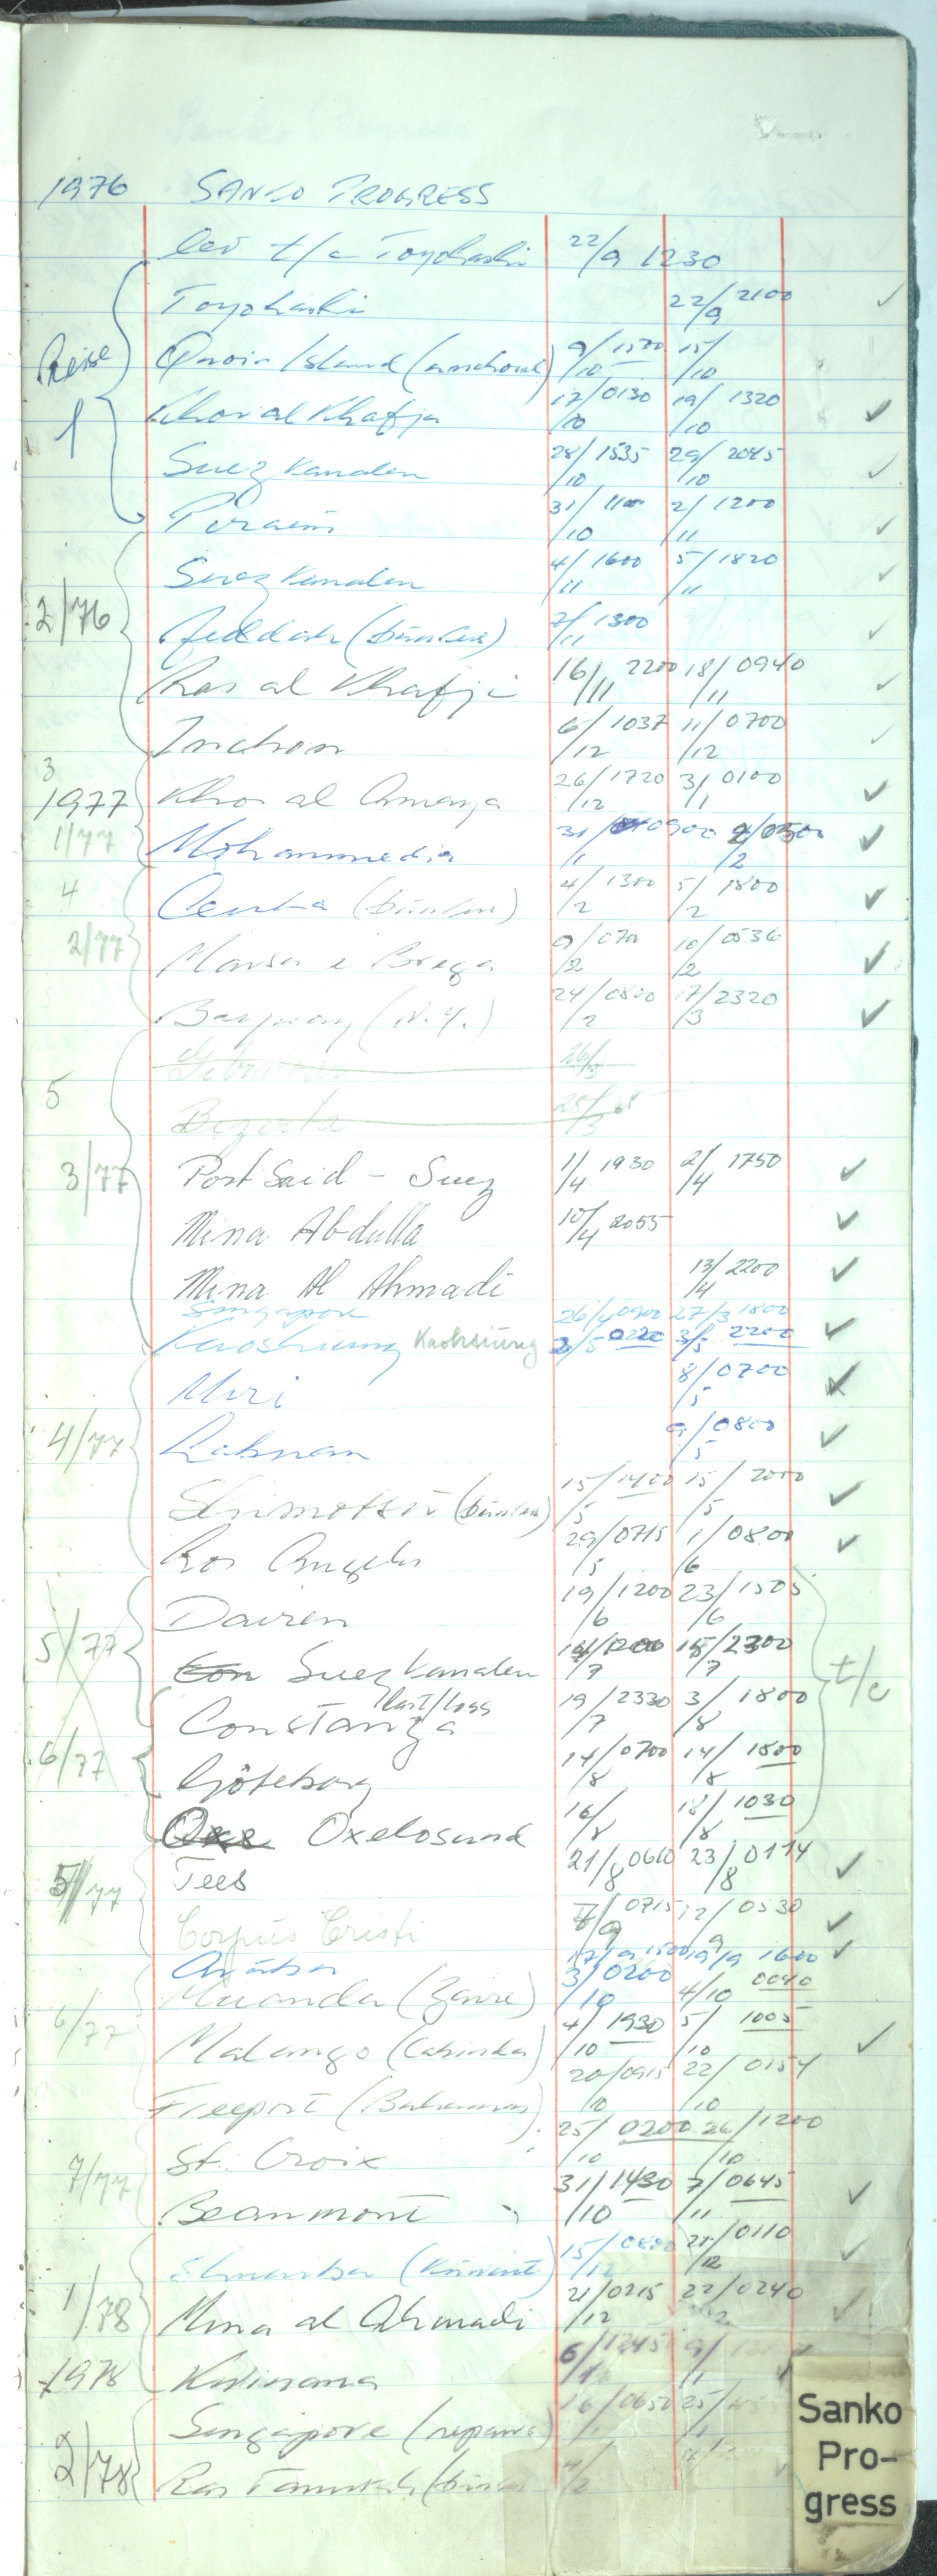 1976 SANKO PROGRESS
lev t/c Toyohashi 22/9 1230
Toyohashi 22/9 2100
Reise 1
Quoin Island (anchorage) 9/10 1500 15/10
Khor al Khafja 17/10 0130 19/10 1320
Suez kanalen 28/10 1535 29/10 2045
Piraeus 31/10 1100 2/11 1200
Suez kanalen 4/11 1600 5/11 1820
2/76
Jeddah (bunkers) 7/11 1300
Ras al Khafji 16/11 2200 18/11 0940
Inchon 6/12 1037 11/12 0700
3
1977 Khor al Amaya 26/12 1720 3/1 0100
1/77 Mohammedia 31/1 0900 2/2 0500
4 Ceuta (bunkers) 4/2 1300 5/2 1800
2/77 Marsa e Brega 9/2 0700 10/2 0536
Bayway (N.Y.) 24/2 0800 17/3 2320
Gibraltar 26/3
5 Bizerta 28/3
3/77 Port Said - Suez 1/4 1930 2/4 1750
Mina Abdulla 10/4 2055
Mina Al Ahmadi 13/4 2200
Singapore 26/4 0900 27/3 1800
Kaoshiung Kaohsiung 3/5 0220 3/5 2200
Miri 8/5 0700
4/77 Labuan 9/5 0800
Shimotsu (bunkers) 15/5 1400 15/5 2000
Los Angeles 29/5 0715 1/6 0800
Dairen 19/6 1200 23/6 1505
5/77 Con Suez kanalen 14/7 1200 15/7 2300 t/c
last/loss
Constanza 19/7 2330 3/8 1800
6/77 Göteborg 14/8 0700 14/8 1800
Oxe Oxelosund 16/8 18/8 1030
5/77 Tees 21/8 0610 23/8 0114
Corpus Cristi 8/9 0715 12/9 0530
Aruba 17/9 1500 19/9 1600
Muanda (Zaire) 3/10 0200 4/10 0040
6/77 Malongo (Cabinda) 4/10 1930 5/10 1005
Freeport (Bahamas) 20/10 0915 22/10 0154
St. Croix 25/10 0200 26/10 1200
7/77 Beaumont 31/10 1430 7/11 0645
(Kuwait) 15/12 22/12 0110
1/78 Mina al Ahmadi 21/12 0215 22/12 0240
1978 Kwinana 6/1 1245 9/1
Singapore (repairs) 16/1 0650 25/1
2/78 Ras Tanurah 4/2
Sanko
Pro-
gress